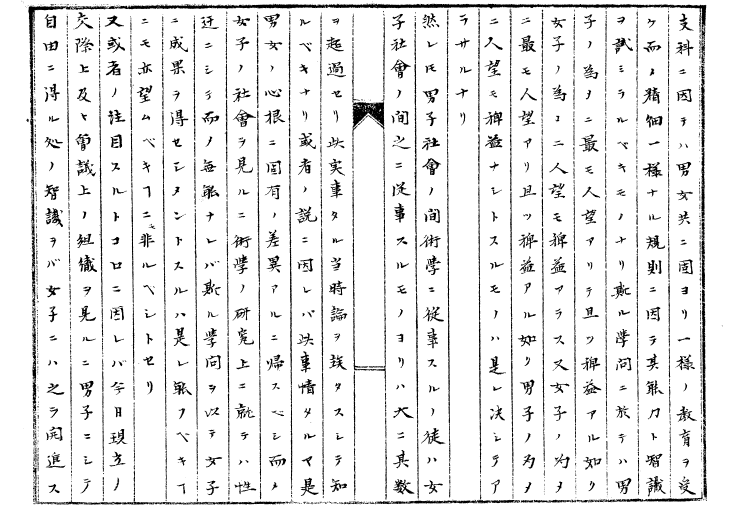 支科ニ因テハ男女共ニ固ヨリ一様ノ教育ヲ受
ケ而〆精細一様ナル規則ニ因テ其能力ト智識
ヲ試ミラルベキモノナリ斯ル学問ニ於テハ男
子ノ為メニ最モ人望アリテ且ツ裨益アル如ク
女子ノ為ニニ人望モ裨益アラス又女子ノ為メ
ニ最モ人望アリ且ツ裨益アル如ク男子ノ為メ
ニ人望モ裨益ナシトスルモノハ是レ决シテア
ラサルナリ
然レ𪜈男子社會ノ間術學ニ從事スルノ徒ハ女
子社會ノ間之ニ従事スルモノヨリハ大ニ其数
ヲ超過セリ此実事タル当時論ヲ竢タスシテ知
ルベキナリ或者ノ説ニ因レバ此事情タルヤ是
男女ノ心根ニ固有ノ差異アルニ帰スベシ而〆
女子ノ社會ヲ見ルニ術學ノ研究上ニ就テハ性
迂ニシテ而ノ無能ナレバ斯ル學問ヲ以テ女子
ニ成果ヲ得セシメントスルハ是レ能フベキヿ
ニモ亦望ムベキヿニモ非ルベシトセリ
又或者ノ注目スルトコロニ因レバ今日現立ノ
交際上及ヒ會議上ノ組織ヲ見ルニ男子ニシテ
自由ニ得ル処ノ智識ヲバ女子ニハ之ヲ開進ス